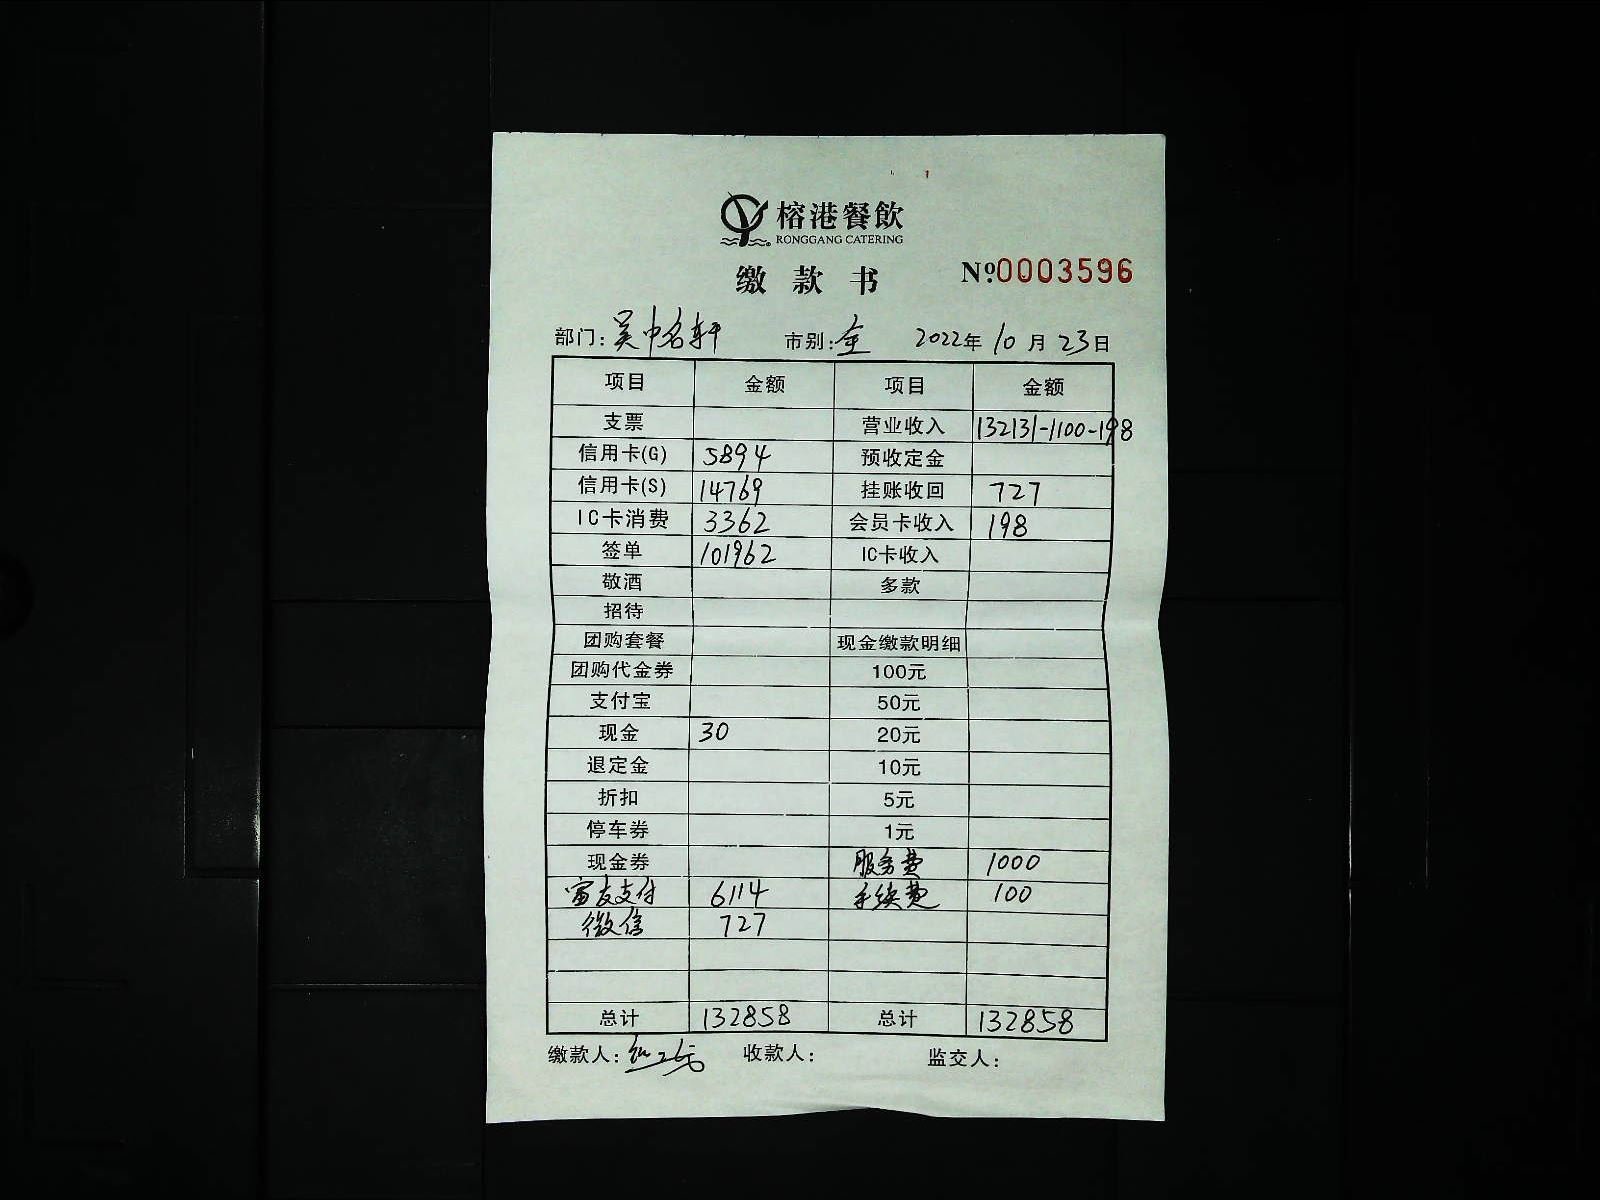 榕港餐飲
RONGGANG CATERING
缴款书 №0003596
部门: 吴中名轩 市别: 全 2022年10月23日
项目 金额 项目 金额
支票 营业收入 132131-1100-198
信用卡(G) 5894 预收定金
信用卡(S) 14769 挂账收回 727
IC卡消费 3362 会员卡收入 198
签单 101962 IC卡收入
敬酒 多款
招待
团购套餐 现金缴款明细
团购代金券 100元
支付宝 50元
现金 30 20元
退定金 10元
折扣 5元
停车券 1元
现金券 服务费 1000
富友支付 6114 手续费 100
微信 727
总计 132858 总计 132858
缴款人: 收款人: 监交人: